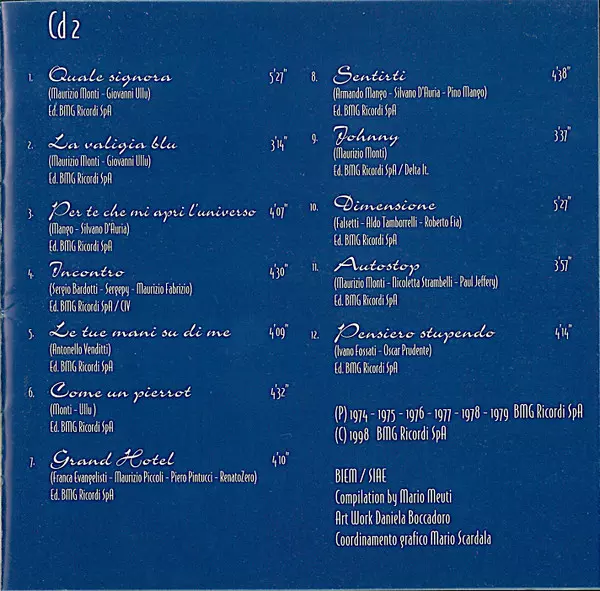 Cd 2
1. Quale signora 5'27"
(Maurizio Monti - Giovanni Ullu)
Ed. BMG Ricordi SpA
2. La valigia blu 3'14"
(Maurizio Monti - Giovanni Ullu)
Ed. BMG Ricordi SpA
3. Per te che mi apri l'universo 4'07"
(Mango - Silvano D'Auria)
Ed. BMG Ricordi SpA
4. Incontro 4'30"
(Sergio Bardotti - Sergepy - Maurizio Fabrizio)
Ed. BMG Ricordi SpA / CIV
5. Le tue mani su di me 4'09"
(Antonello Venditti)
Ed. BMG Ricordi SpA
6. Come un pierrot 4'32"
(Monti - Ullu )
Ed. BMG Ricordi SpA
7. Grand Hotel 4'10"
(Franca Evangelisti - Maurizio Piccoli - Piero Pintucci - RenatoZero)
Ed. BMG Ricordi SpA
8. Sentirti 4'38"
(Armando Mango - Silvano D'Auria - Pino Mango)
Ed. BMG Ricordi SpA
9. Johnny 3'37"
(Maurizio Monti)
Ed. BMG Ricordi SpA / Delta It.
10. Dimensione 5'27"
(Falsetti - Aldo Tamborrelli - Roberto Fia)
Ed. BMG Ricordi SpA
11. Autostop 3'57"
(Maurizio Monti - Nicoletta Strambelli - Paul Jeffery)
Ed. BMG Ricordi SpA
12. Pensiero stupendo 4'14"
(Ivano Fossati - Oscar Prudente)
Ed. BMG Ricordi SpA
(P) 1974 - 1975 - 1976 - 1977 - 1978 - 1979 BMG Ricordi SpA
(C) 1998 BMG Ricordi SpA
BIEM / SIAE
Compilation by Mario Meuti
Art Work Daniela Boccadoro
Coordinamento grafico Mario Scardala